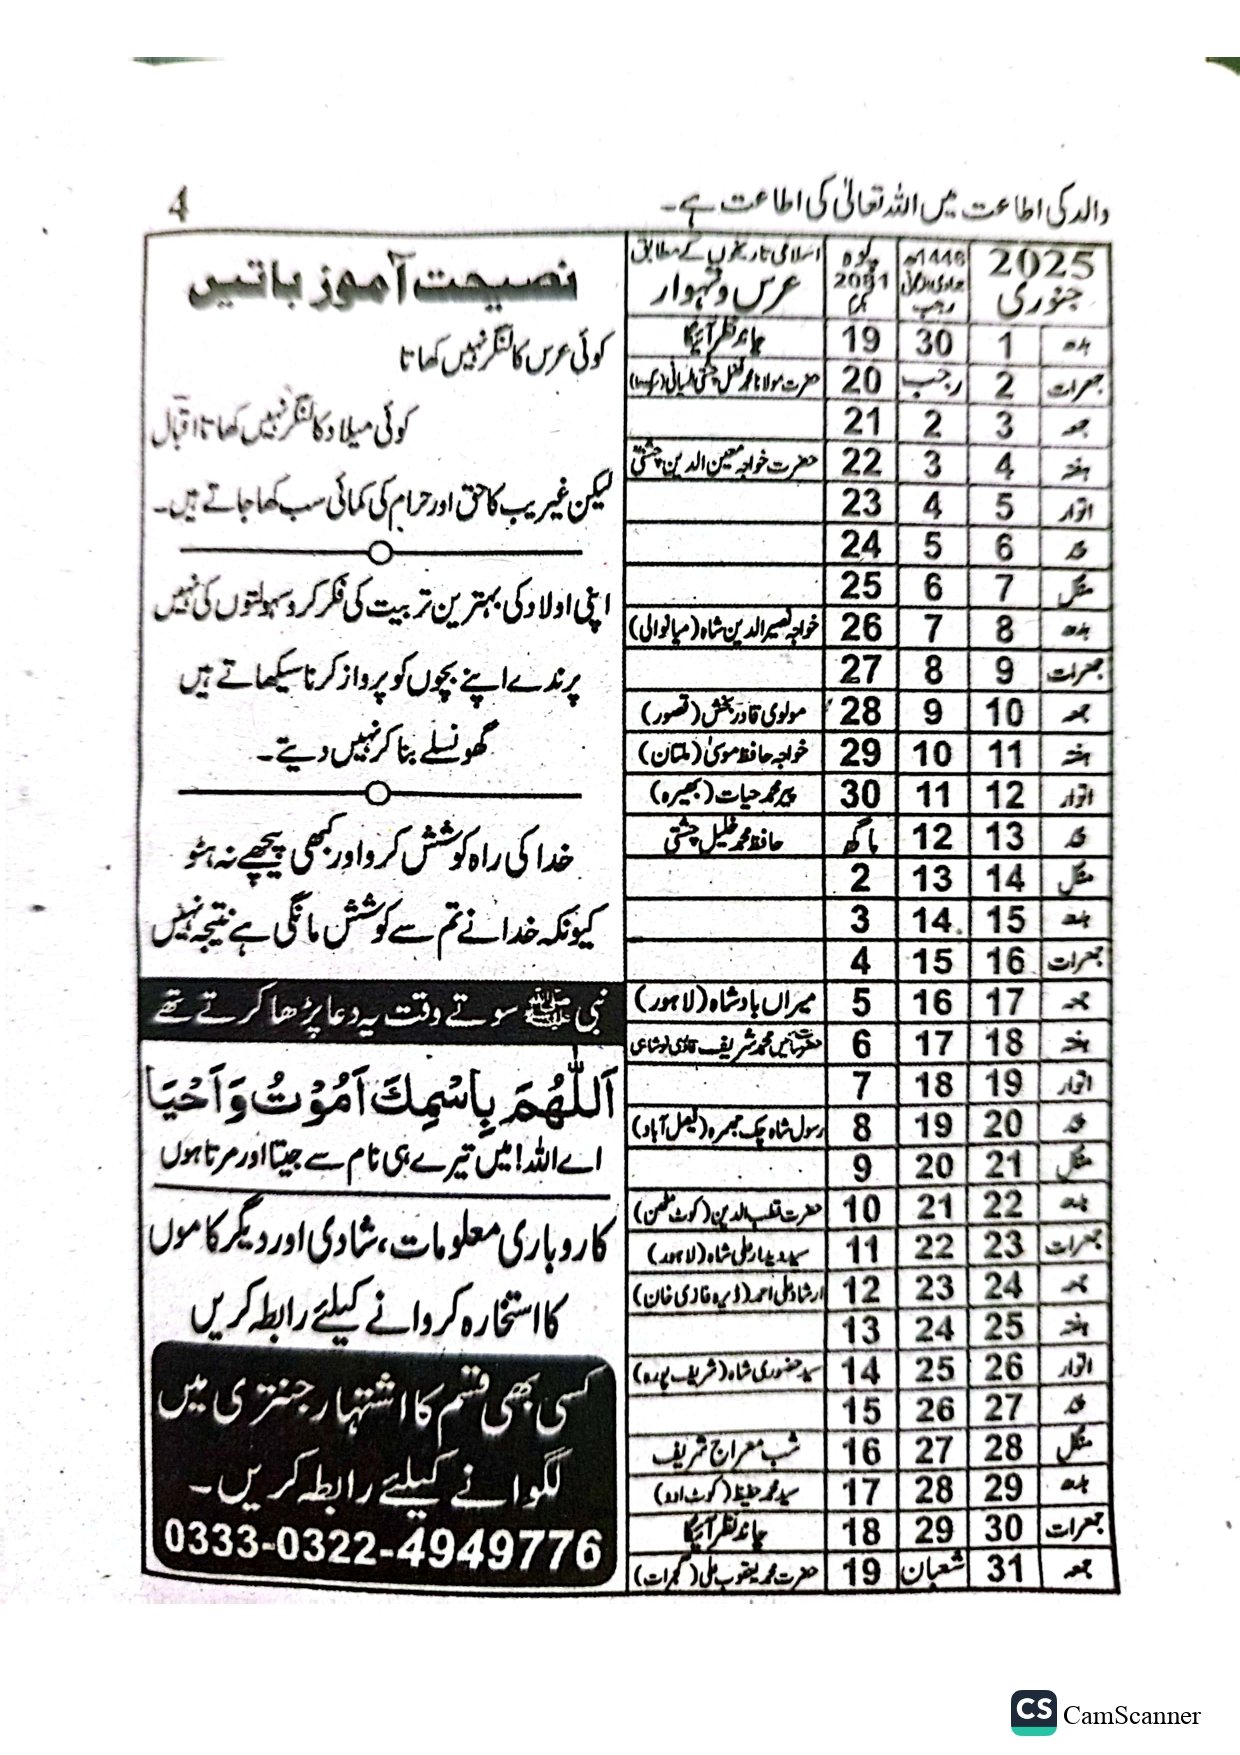 والد کی اطاعت میں اللہ تعالیٰ کی اطاعت ہے۔
4
2025 جنوری
1446ھ جمادی الثانی رجب
پوہ 2081 بکرمی
اسلامی تاریخوں کے مطابق عرس و تہوار
بدھ 1 30 19 چاند نظر آئیگا
جمعرات 2 رجب 20 حضرت مولانا محمد فضل چشتی
جمعہ 3 2 21
ہفتہ 4 3 22 حضرت خواجہ معین الدین چشتی
اتوار 5 4 23
پیر 6 5 24
منگل 7 6 25
بدھ 8 7 26 خواجہ نصیر الدین شاہ (میانوالی)
جمعرات 9 8 27
جمعہ 10 9 28 مولوی قادر بخش (قصور)
ہفتہ 11 10 29 خواجہ حافظ موسیٰ (ملتان)
اتوار 12 11 30 پیر محمد حیات (بھیرہ)
پیر 13 12 ماگھ حافظ محمد خلیل چشتی
منگل 14 13 2
بدھ 15 14 3
جمعرات 16 15 4
جمعہ 17 16 5 میراں بادشاہ (لاہور)
ہفتہ 18 17 6 حضرت سائیں محمد شریف قادری نوشاہی
اتوار 19 18 7
پیر 20 19 8 رسول شاہ چک جھمرہ (فیصل آباد)
منگل 21 20 9
بدھ 22 21 10 حضرت قطب الدین (کوٹ مٹھن)
جمعرات 23 22 11 سید دیدار علی شاہ (لاہور)
جمعہ 24 23 12 ارشاد علی احمد (ڈیرہ غازی خان)
ہفتہ 25 24 13
اتوار 26 25 14 سید حضوری شاہ (شریف پورہ)
پیر 27 26 15
منگل 28 27 16 شب معراج شریف
بدھ 29 28 17 سید محمد حفیظ (کوٹ ادو)
جمعرات 30 29 18 چاند نظر آئیگا
جمعہ 31 شعبان 19 حضرت محمد یعقوب علی (گجرات)
نصیحت آموز باتیں
کوئی عرس کا لنگر نہیں کھاتا
کوئی میلاد کا لنگر نہیں کھاتا اقبالؔ
لیکن غریب کا حق اور حرام کی کمائی سب کھا جاتے ہیں۔
اپنی اولاد کی بہترین تربیت کی فکر کرو سہولتوں کی نہیں
پرندے اپنے بچوں کو پرواز کرنا سیکھاتے ہیں
گھونسلے بنا کر نہیں دیتے۔
خدا کی راہ کوشش کرو اور کبھی پیچھے نہ ہٹو
کیونکہ خدا نے تم سے کوشش مانگی ہے نتیجہ نہیں
نبی ﷺ سوتے وقت یہ دعا پڑھا کرتے تھے
اَللّٰهُمَّ بِاسْمِكَ اَمُوْتُ وَاَحْيَا
اے اللہ! میں تیرے ہی نام سے جیتا اور مرتا ہوں
کاروباری معلومات، شادی اور دیگر کاموں
کا استخارہ کروانے کیلئے رابطہ کریں
کسی بھی قسم کا اشتہار جنتری میں
لگوانے کیلئے رابطہ کریں۔
0333-0322-4949776
CS CamScanner